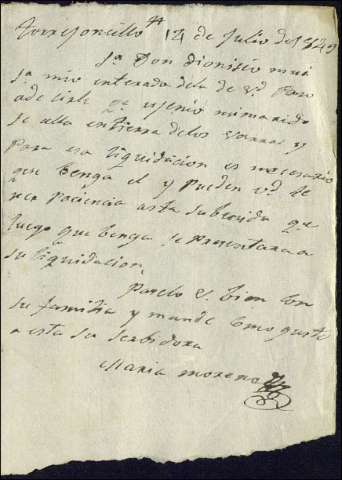 Torrejoncillo 14 de Julio de 1849
Sr Don dionisio mui
sr mio enterada de la de Vd Paso
a de cirle qe ujenio mi marido
se alla en tierra de los Varros y
para esa liquidacion es nesesario
que benga el y pueden Vd te
ner paciencia asta su benida que
luego que benga se presentara a
su liquidacion,
Paselo V. bien con
su familia y mande como guste
a esta su serbidora
Maria moreno